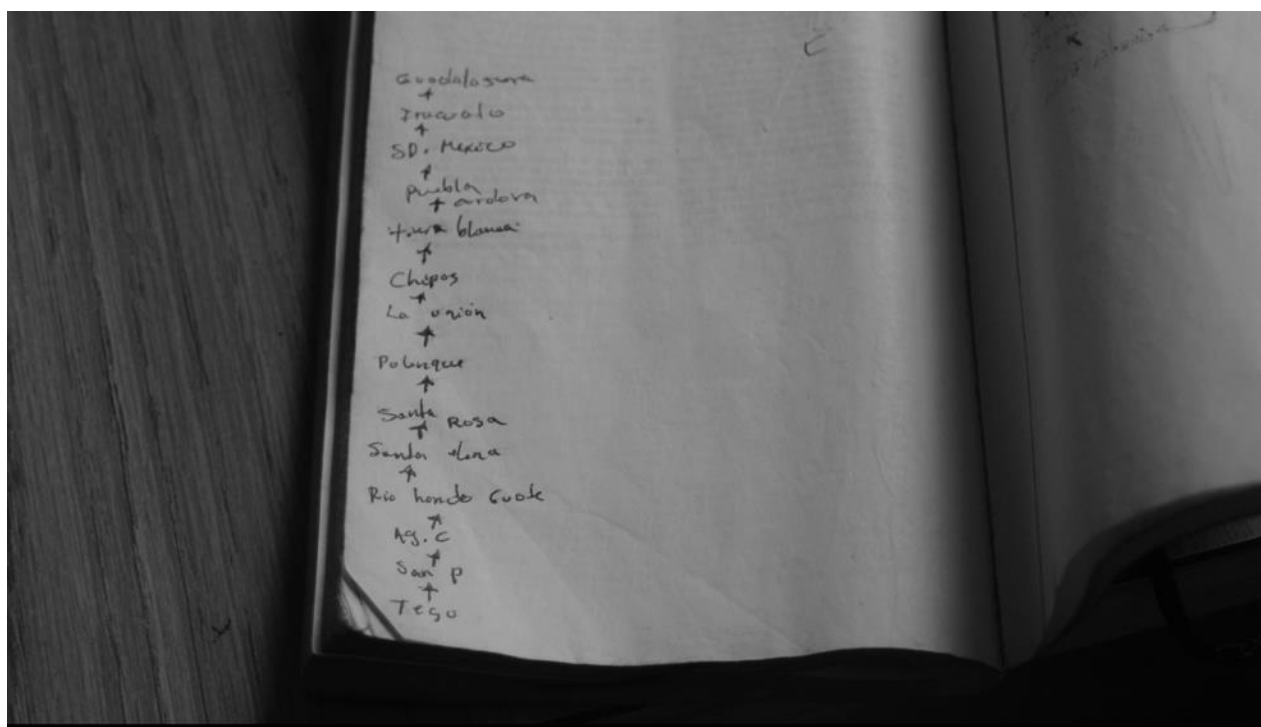 Guadalajara
↑
Irapuato
↑
SD. Mexico
↑
Puebla
↑ cordova
tierra blanca
↑
Chipas
↑
La unión
↑
Polenque
↑
Santa
↑ Rosa
Santa elena
↑
Rio hondo Guate
↑
Ag. C
↑
San P
↑
Tegu